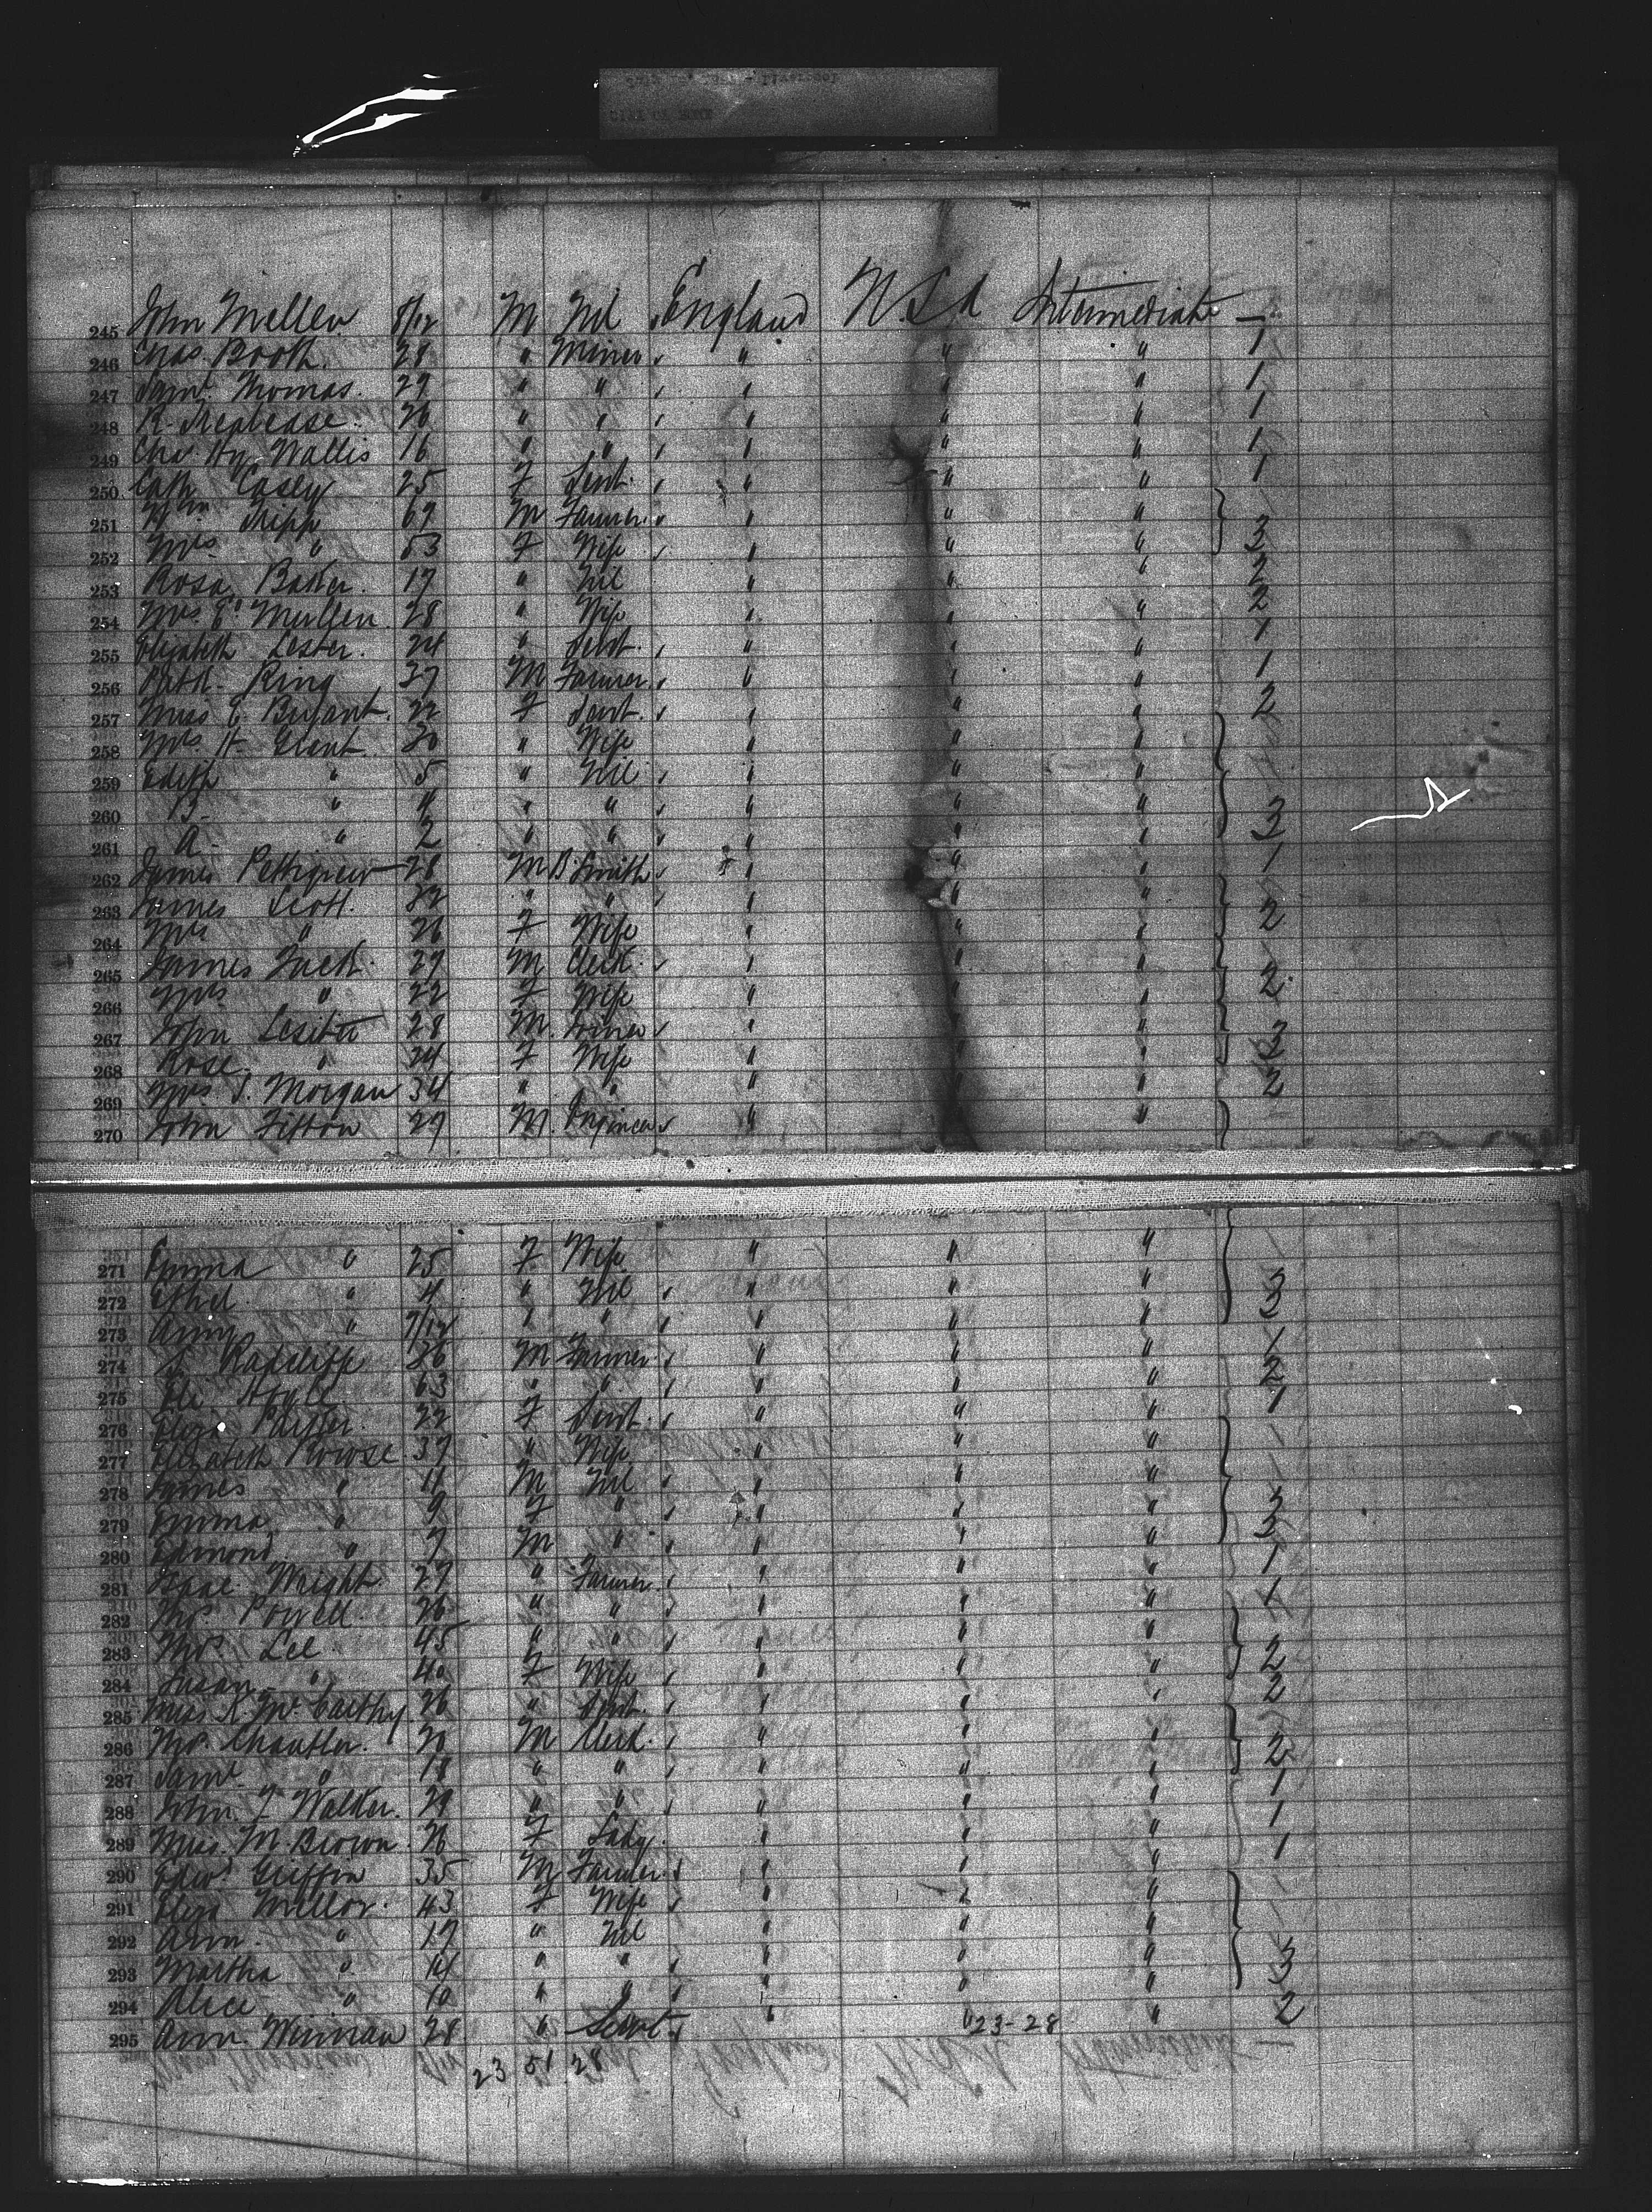 City of Rome
245 John Mullen 8/12 M Nil England U.S.A Intermediate 1
246 Chas. Booth. 28 " Miner " " " 1
247 Saml. Thomas. 29 " " " " " 1
248 R. 26 " " " " " 1
249 Chas. Hy. Wallis 16 " " " " " 1
250 Cath Casey 25 F Servt. " " "
251 Wm. Tripp 69 M Farmer " " " 3
252 Mrs " 53 F Wife " " " 2
253 Rosa Baker. 17 " Nil " " " 2
254 Mrs. E. Mullen. 28 " Wife " " " 1
255 Elizabeth Lester. 24 " Servt. " " " 1
256 Patk. Ring 37 M Farmer " " " 2
257 Miss E. Bryant. 22 F Servt. " " "
258 Mrs. H. Grant 30 " Wife " " "
259 Edith " 5 " Nil " " "
260 B. " 4 " " " " " 3
261 A. " 2 " " " " " 1
262 James Pettigrew 28 M B. Smith " " "
263 James Scott. 32 " " " " " 2
264 Mrs " 26 F Wife " " "
265 James Tuck. 27 M Clerk. " " " 2
266 Mrs " 22 F Wife " " "
267 John 28 M. " " " 3
268 Rose " 24 F Wife " " " 2
269 Mrs. S. Morgan 34 " " " " "
270 John Fitton 29 M. Engineer " " "
271 Emma " 25 F Wife " " "
272 Ethel " 4 " Nil " " " 3
273 Amy " 7/12 " " " " " 1
274 S. Radcliffe 36 M Farmer " " " 2
275 Eli 63 " " " " " 1
276 Eliza 22 F Servt. " " "
277 Elizabeth Rowse 37 " Wife " " "
278 James " 11 M Nil " " " 3
279 Emma " 9 F " " " " 3
280 Edmond " 7 M " " " " 1
281 Isaac Wright. 27 " Farmer " " " 1
282 Thos. Powell. 26 " " " " "
283 Thos. Lee 45 " " " " " 2
284 Susan " 40 F Wife " " " 2
285 Miss K. McCarthy 26 " Servt. " " "
286 Thos. Chantler. 20 M Clerk. " " " 2
287 Saml. " 18 " " " " " 1
288 John. T. Walker. 29 " " " " " 1
289 Miss. M. Brown. 26 F Lady. " " " 1
290 Edwd. Griffin 35 M Farmer. " " "
291 Eliza Mellor. 43 F Wife " " "
292 Ann. " 17 " Nil " " "
293 Martha " 14 " " " " " 3
294 Alice " 10 " " " " " 2
295 Ann. 28 " Servt " " "
23-28
23 51 28